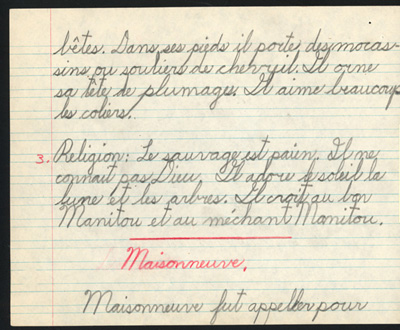 bêtes. Dans ses pieds il porte des mocas-
sins ou souliers de chevreuil. Il orne
sa tête de plumages. Il aime beaucoup
les coliers.
3. Religion: Le sauvage est païen. Il ne
connait pas Dieu. Il adore le soleil la
lune et les arbres. Il croit au bon
Manitou et au méchant Manitou.
Maisonneuve.
Maisonneuve fut appeller pour